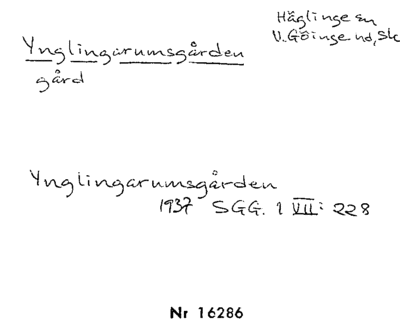 Ynglingarumsgården
gård
Häglinge sn
V. Göinge hd, Sk
Ynglingarumsgården
1937 SGG. 1 VII: 228
Nr 16286